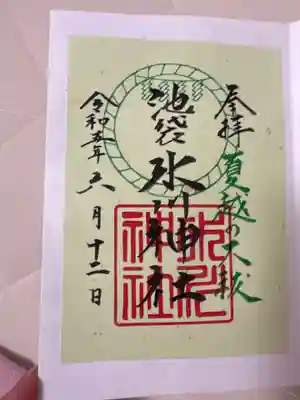 奉拝
夏越の大祓
池袋
氷川神社
令和五年六月十二日
氷川
神社